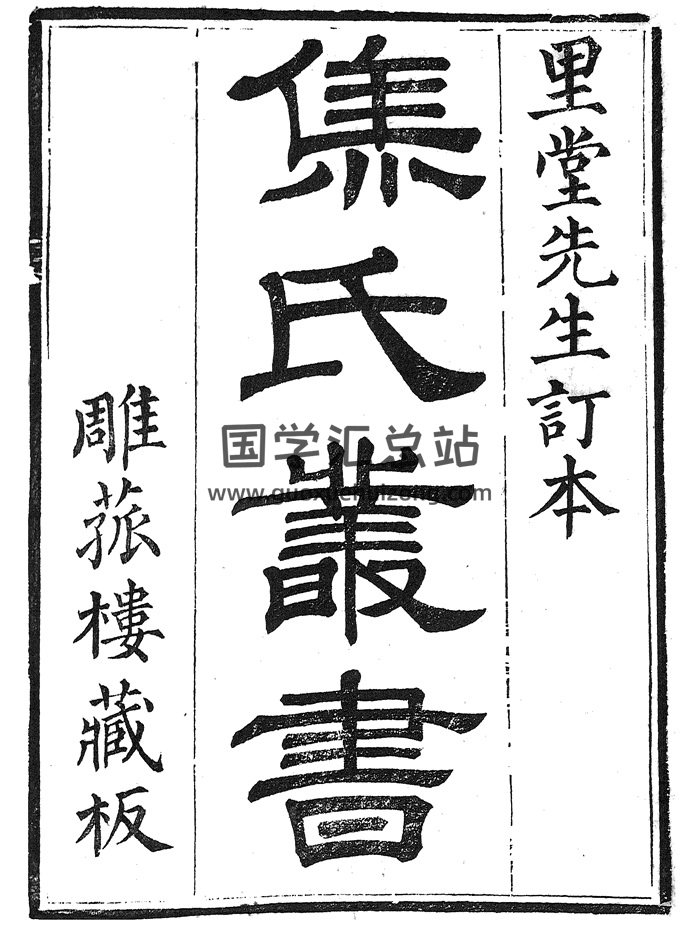 里堂先生訂本
焦氏叢書
雕菰樓藏板
国学汇总站
www.guoxuehuizong.com